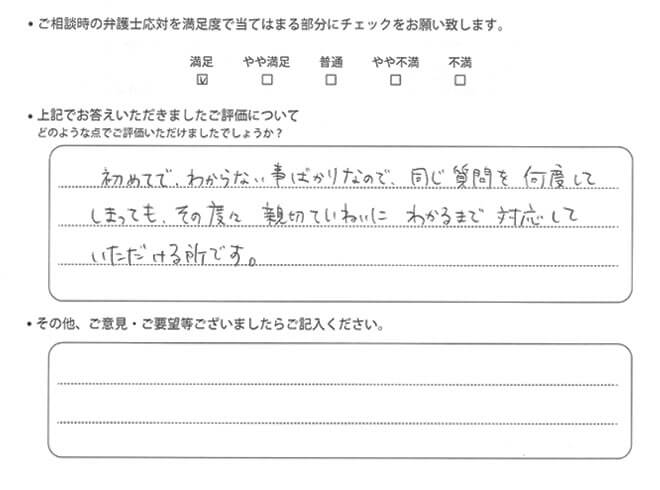 • ご相談時の弁護士応対を満足度で当てはまる部分にチェックをお願い致します。
満足 やや満足 普通 やや不満 不満
☑ □ □ □ □
• 上記でお答えいただきましたご評価について
どのような点でご評価いただけましたでしょうか？
初めてで、わからない事ばかりなので、同じ質問を何度して
しまっても、その度に 親切ていねいに わかるまで 対応して
いただける所です。
• その他、ご意見・ご要望等ございましたらご記入ください。